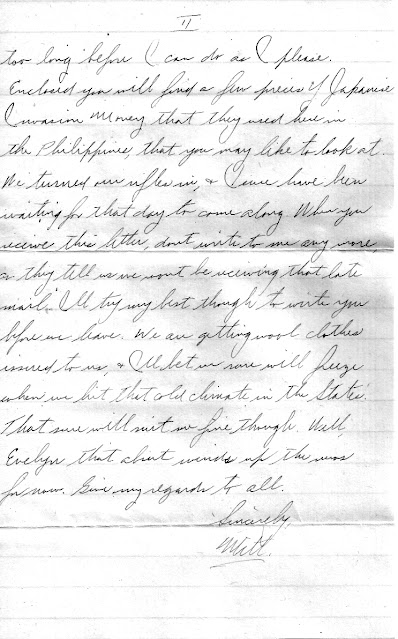 II
too long before I can do as I please.
Enclosed you will find a few pieces of Japanese
Invasion Money that they used here in
the Philippines, that you may like to look at.
We turned our rifles in, & I sure have been
waiting for that day to come along. When you
receive this letter, dont write to me any more,
as they tell us we wont be receiving that late
mail. I'll try my best though to write you
before we leave. We are getting wool clothes
issued to us, & I'll bet we sure will freeze
when we hit that old climate in the States.
That sure will suit me fine though. Well,
Evelyn that about winds up the news
for now. Give my regards to all.
Sincerely,
Milt.